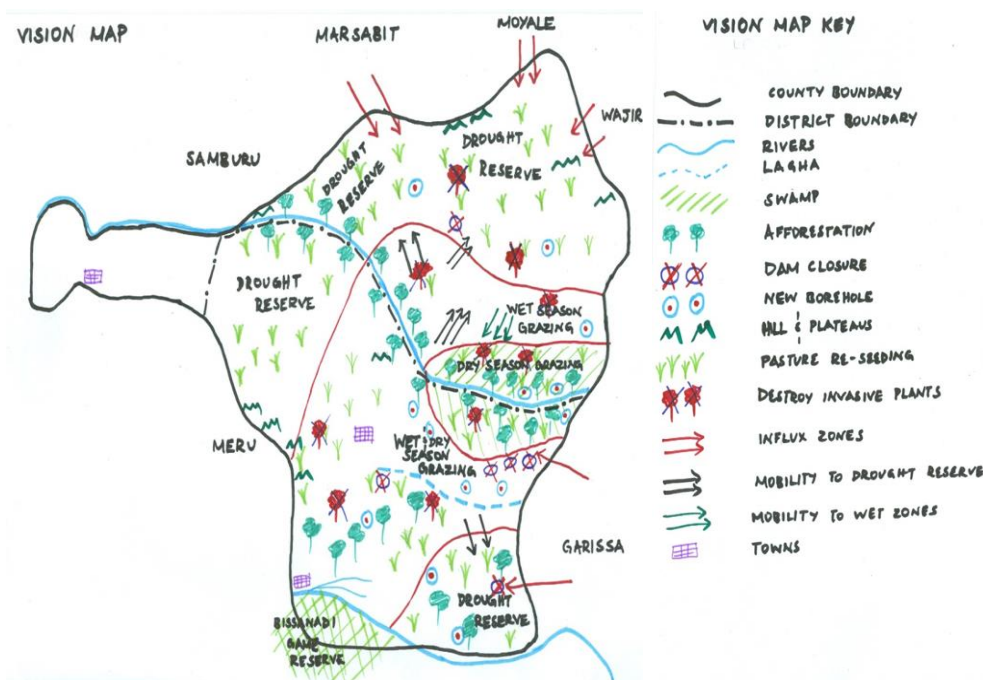 VISION MAP
MARSABIT
MOYALE
WAJIR
SAMBURU
DROUGHT
RESERVE
DROUGHT
RESERVE
DROUGHT
RESERVE
WET SEASON
GRAZING
DRY SEASON GRAZING
MERU
WET & DRY
SEASON
GRAZING
GARISSA
DROUGHT
RESERVE
BISSANADI
GAME
RESERVE
VISION MAP KEY
COUNTY BOUNDARY
DISTRICT BOUNDARY
RIVERS
LAGHA
SWAMP
AFFORESTATION
DAM CLOSURE
NEW BOREHOLE
HILL & PLATEAUS
PASTURE RE-SEEDING
DESTROY INVASIVE PLANTS
INFLUX ZONES
MOBILITY TO DROUGHT RESERVE
MOBILITY TO WET ZONES
TOWNS